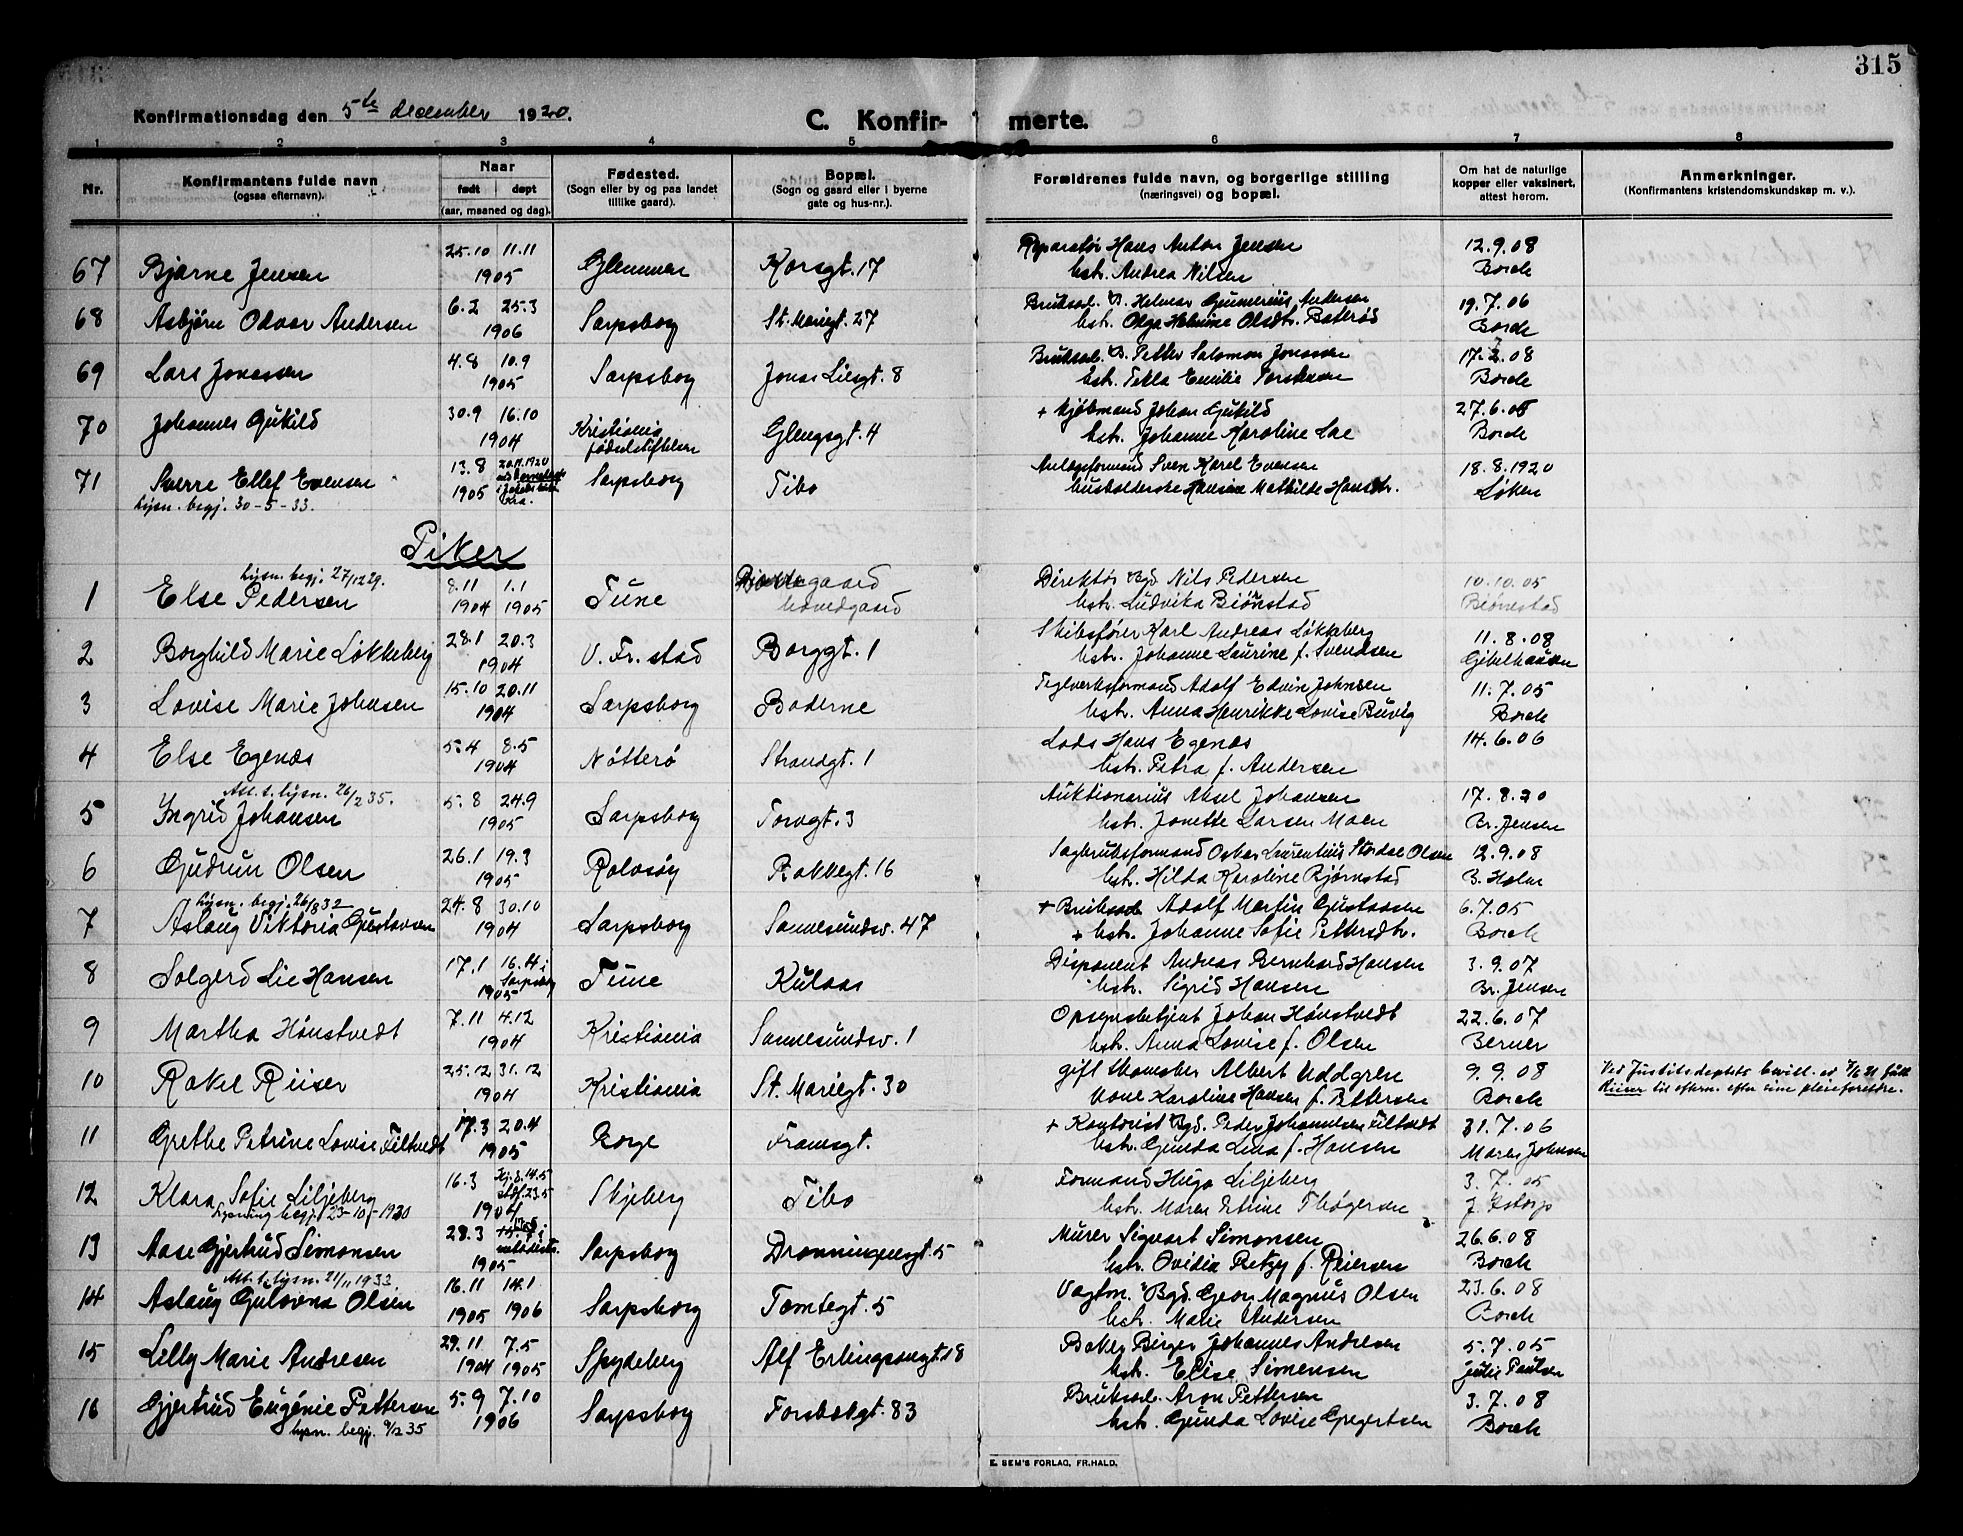 315
Konfirmationsdag den 5te december 1920.
C. Konfir- merte.
1 2 3 4 5 6 7 8
Nr.
Konfirmantens fulde navn
(ogsaa efternavn).
Naar
født døpt
(aar, maaned og dag).
Fødested.
(Sogn eller by og paa landet
tillike gaard).
Bopæl.
(Sogn og gaard eller i byerne
gate og hus-nr.).
Forældrenes fulde navn, og borgerlige stilling
(næringsvei) og bopæl.
Om hat de naturlige
kopper eller vaksinert,
attest herom.
Anmerkninger.
(Konfirmantens kristendomskundskap m. v.).
67 Bjarne Jensen 25.10 11.11 1905 Glemmen Korsgt. 17 Reparatør Hans Anton Jensen 12.9.08
hstr. Andrea Nilsen Borch
68 Asbjørn Odvar Andersen 6.2 25.3 1906 Sarpsborg St. Mariegt. 27 Bruksarb. Helmer Gunnerius Andersen 19.7.06
hstr. Olga Helmine Olsdtr. Batterød Borch
69 Lars Jonassen 4.8 10.9 1905 Sarpsborg Jonas Liesgt. 8 Bruksarb. Petter Salomon Jonassen 08
hstr. Tekla Emilie Borch
70 Johannes Gukild 30.9 16.10 1904 Kristiania fødselsstiftelse Glengsgt. 4 + Kjøbmand Johan Gukild 27.6.05
hstr. Johanne Karoline Lae Borch
71 Sverre Ellef Evensen 13.8 1905 20.11.1920 Sarpsborg Tibo Anlægsformand Sven Karel Evensen 18.8.1920
husholderske Hansine Mathilde Hansdtr. Løken
Lysn. begj. 30-5-33.
Piker
Lysn. begj. 27/12 29.
1 Else Pedersen 8.11 1904 1.1 1905 Tune hovedgaard Direktør Bgd. Nils Pedersen 10.10.05
hstr. Ludvika Biørnstad Biørnstad
2 Borghild Marie Løkkeberg 28.1 20.3 1904 V. Fr.stad Borggt. 1 Skibsfører Karl Andreas Løkkeberg 11.8.08
hstr. Johanne Laurine f. Svendsen Gibelhausen
3 Lovise Marie Johnsen 15.10 20.11 1904 Sarpsborg Boderne Teglverksformand Adolf Edvin Johnsen 11.7.05
hstr. Anna Henrikke Lovise Buvig Borch
4 Else Egenæs 5.4 8.5 1904 Nøtterø Strandgt. 1 Lods Hans Egenæs 14.6.06
hstr. Petra f. Andersen
Att. t. lysn. 26/2 35.
5 Ingrid Johansen 5.8 24.9 1905 Sarpsborg Torvgt. 3 Auktionarius Aksel Johansen 17.8.20
hstr. Jonette Larsen Moen Br. Jensen
6 Gudrun Olsen 26.1 19.3 1905 Rolvsøy Bakkegt. 16 Sagbruksformand Oskar Laurentius Stordal Olsen 12.9.08
hstr. Hilda Karoline Bjørnstad B. Holm
Lysn. begj. 26/8 32
7 Aslaug Viktoria Gustavsen 24.8 30.10 1904 Sarpsborg Sannesundsv. 47 + Bruksarb. Adolf Martin Gustavsen 6.7.05
+ hstr. Johanne Sofie Pettersdtr. Borch
8 Solgerd Lie Hansen 17.1 16.4 i Sarpsborg 1905 Tune Kulaas Disponent Andreas Bernhard Hansen 3.9.07
hstr. Sigrid Hansen Br. Jensen
9 Martha Hønstvedt 7.11 4.12 1904 Kristiania Sannesundsv. 1 Opsynsbetjent Johan Hønstvedt 22.6.07
hstr. Anna Lovise f. Olsen Berner
10 Rakel Riiser 25.12 31.12 1904 Kristiania St. Mariegt. 30 gift skomaker Albert Uddgren 9.9.08 Ved Justitsdeptets bevill. av
Karoline Hansen f. Pettersen Borch Riiser til eftern. efter sine pleieforældre.
11 Grethe Petrine Lovise Filtvedt 17.3 20.4 1905 Borge Framsgt. + Kontorist Bgd. Peder Johannesen Filtvedt 31.7.06
hstr. Gunda Lina f. Hansen Maren Johnsen
12 Klara Sofie Liljeberg 16.3 Hj.d. 14.5 stdf. 23.5 1904 Skjeberg Tibo Formand Hugo Liljeberg 3.7.05
Lysning begj. 23-10-1930 hstr. Maren Etrine Thøgersen J. Istorp
13 Aase Gjertrud Simonsen 28.3 1905 Sarpsborg Dronningensgt. 5 Murer Sigvart Simonsen 26.6.08
hstr. Ovidia Betzy f. Reiersen Borch
Att. t. lysn. 21/11 1933.
14 Aslaug Gulovna Olsen 16.11 1905 14.1 1906 Sarpsborg Tomtegt. 5 Vogtm. Bgd. Georg Magnus Olsen 23.6.08
hstr. Marie Andersen Borch
15 Lilly Marie Andresen 29.11 1904 7.5 1905 Spydeberg Alf Erlingsonsgt. 18 Baker Birger Johannes Andresen 5.7.05
hstr. Elise Simensen Julie Paulsen
16 Gjertrud Eugénie Pettersen 5.9 7.10 1906 Sarpsborg Torsbekgt. 83 Bruksarb. Aron Pettersen 3.7.08
Lysn. begj. 9/2 35 hstr. Gunda Lovise Gregertsen Borch
E. SEM'S FORLAG, FR.HALD.